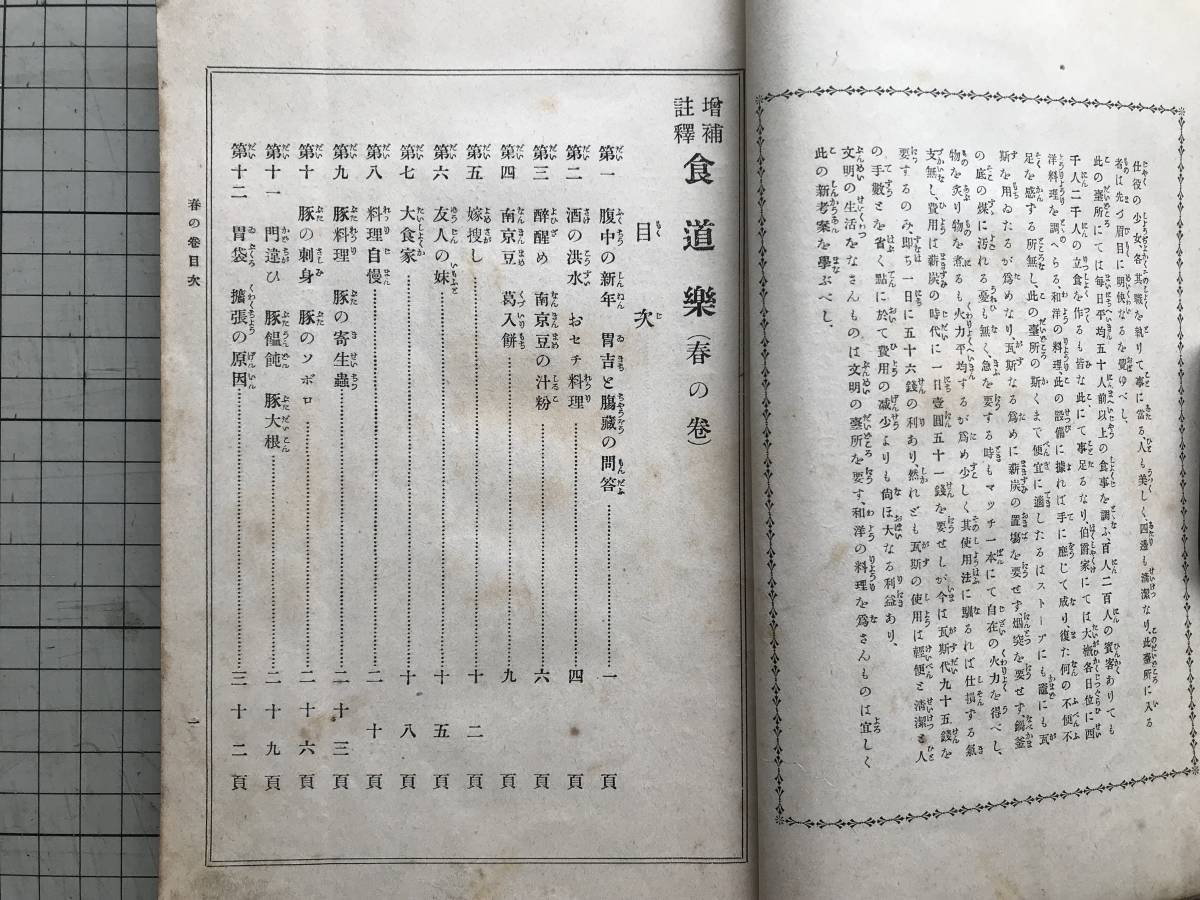 仕役の少女、各其職を執りて事に當る、人も美しく、四邊も清潔なり、此臺所に入る
者は先づ眉目に明快なるを覺ゆべし、
此の臺所にては毎日平均五十人前以上の食事を調ふ、百人二百人の賓客ありても
千人二千人の立食を作るも皆な此にて事足るなり伯爵家にては大槪各日位に西
洋料理を調へらる、和洋の料理此の設備に據れば手に應じて成り、復た何の不便不
足を感ずる所無し、此の臺所の斯くまで便宜に適したるはストーブにも竈にも瓦
斯を用ゐたるが爲めなり瓦斯なる爲めに薪炭の置塲を要せず、烟突を要せず、鍋釜
の底の煤に汚れる憂も無く、急を要する時もマッチ一本にて自在の火力を得べし、
物を炙り物を煮るも火力平均するが爲め少しく其使用法に馴るれば仕損ずる氣
支無し費用は薪炭の時代に一日壹圓五十一錢を要せしが今は瓦斯代九十五錢を
要するのみ、即ち一日に五十六錢の利あり、然れども瓦斯の使用は輕便と清潔と人
の手數とを省く點に於て費用の減少よりも尙ほ大なる利益あり、
文明の生活をなさんものは文明の臺所を要す、和洋の料理を爲さんものは宜しく
此の新考案を學ぶべし、
增補註釋 食道樂(春の卷)
目次
第一 腹中の新年 胃吉と膓藏の問答 一頁
第二 酒の洪水 おセチ料理 四頁
第三 醉醒め 南京豆の汁粉 六頁
第四 南京豆 葛入餅 九頁
第五 嫁搜し 十二頁
第六 友人の妹 十五頁
第七 大食家 十八頁
第八 料理自慢 二十頁
第九 豚料理 豚の寄生蟲 二十三頁
第十 豚の刺身 豚のソボロ 二十六頁
第十一 門違ひ 豚饂飩 豚大根 二十九頁
第十二 胃袋 擴張の原因 三十二頁
春の卷目次
一